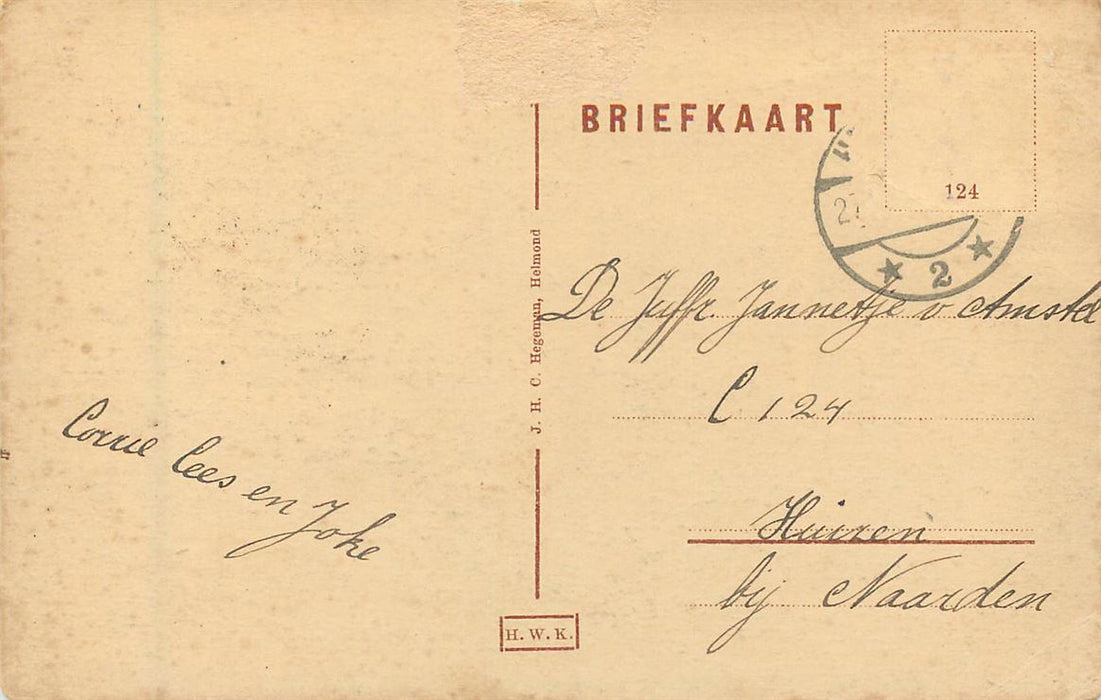 BRIEFKAART
124
27
2
J. H. C. Hegeman, Helmond
De Juffr. Jannetje v Amstel
C 124
Huizen
bij Naarden
Corrie Cees en Joke
H. W. K.